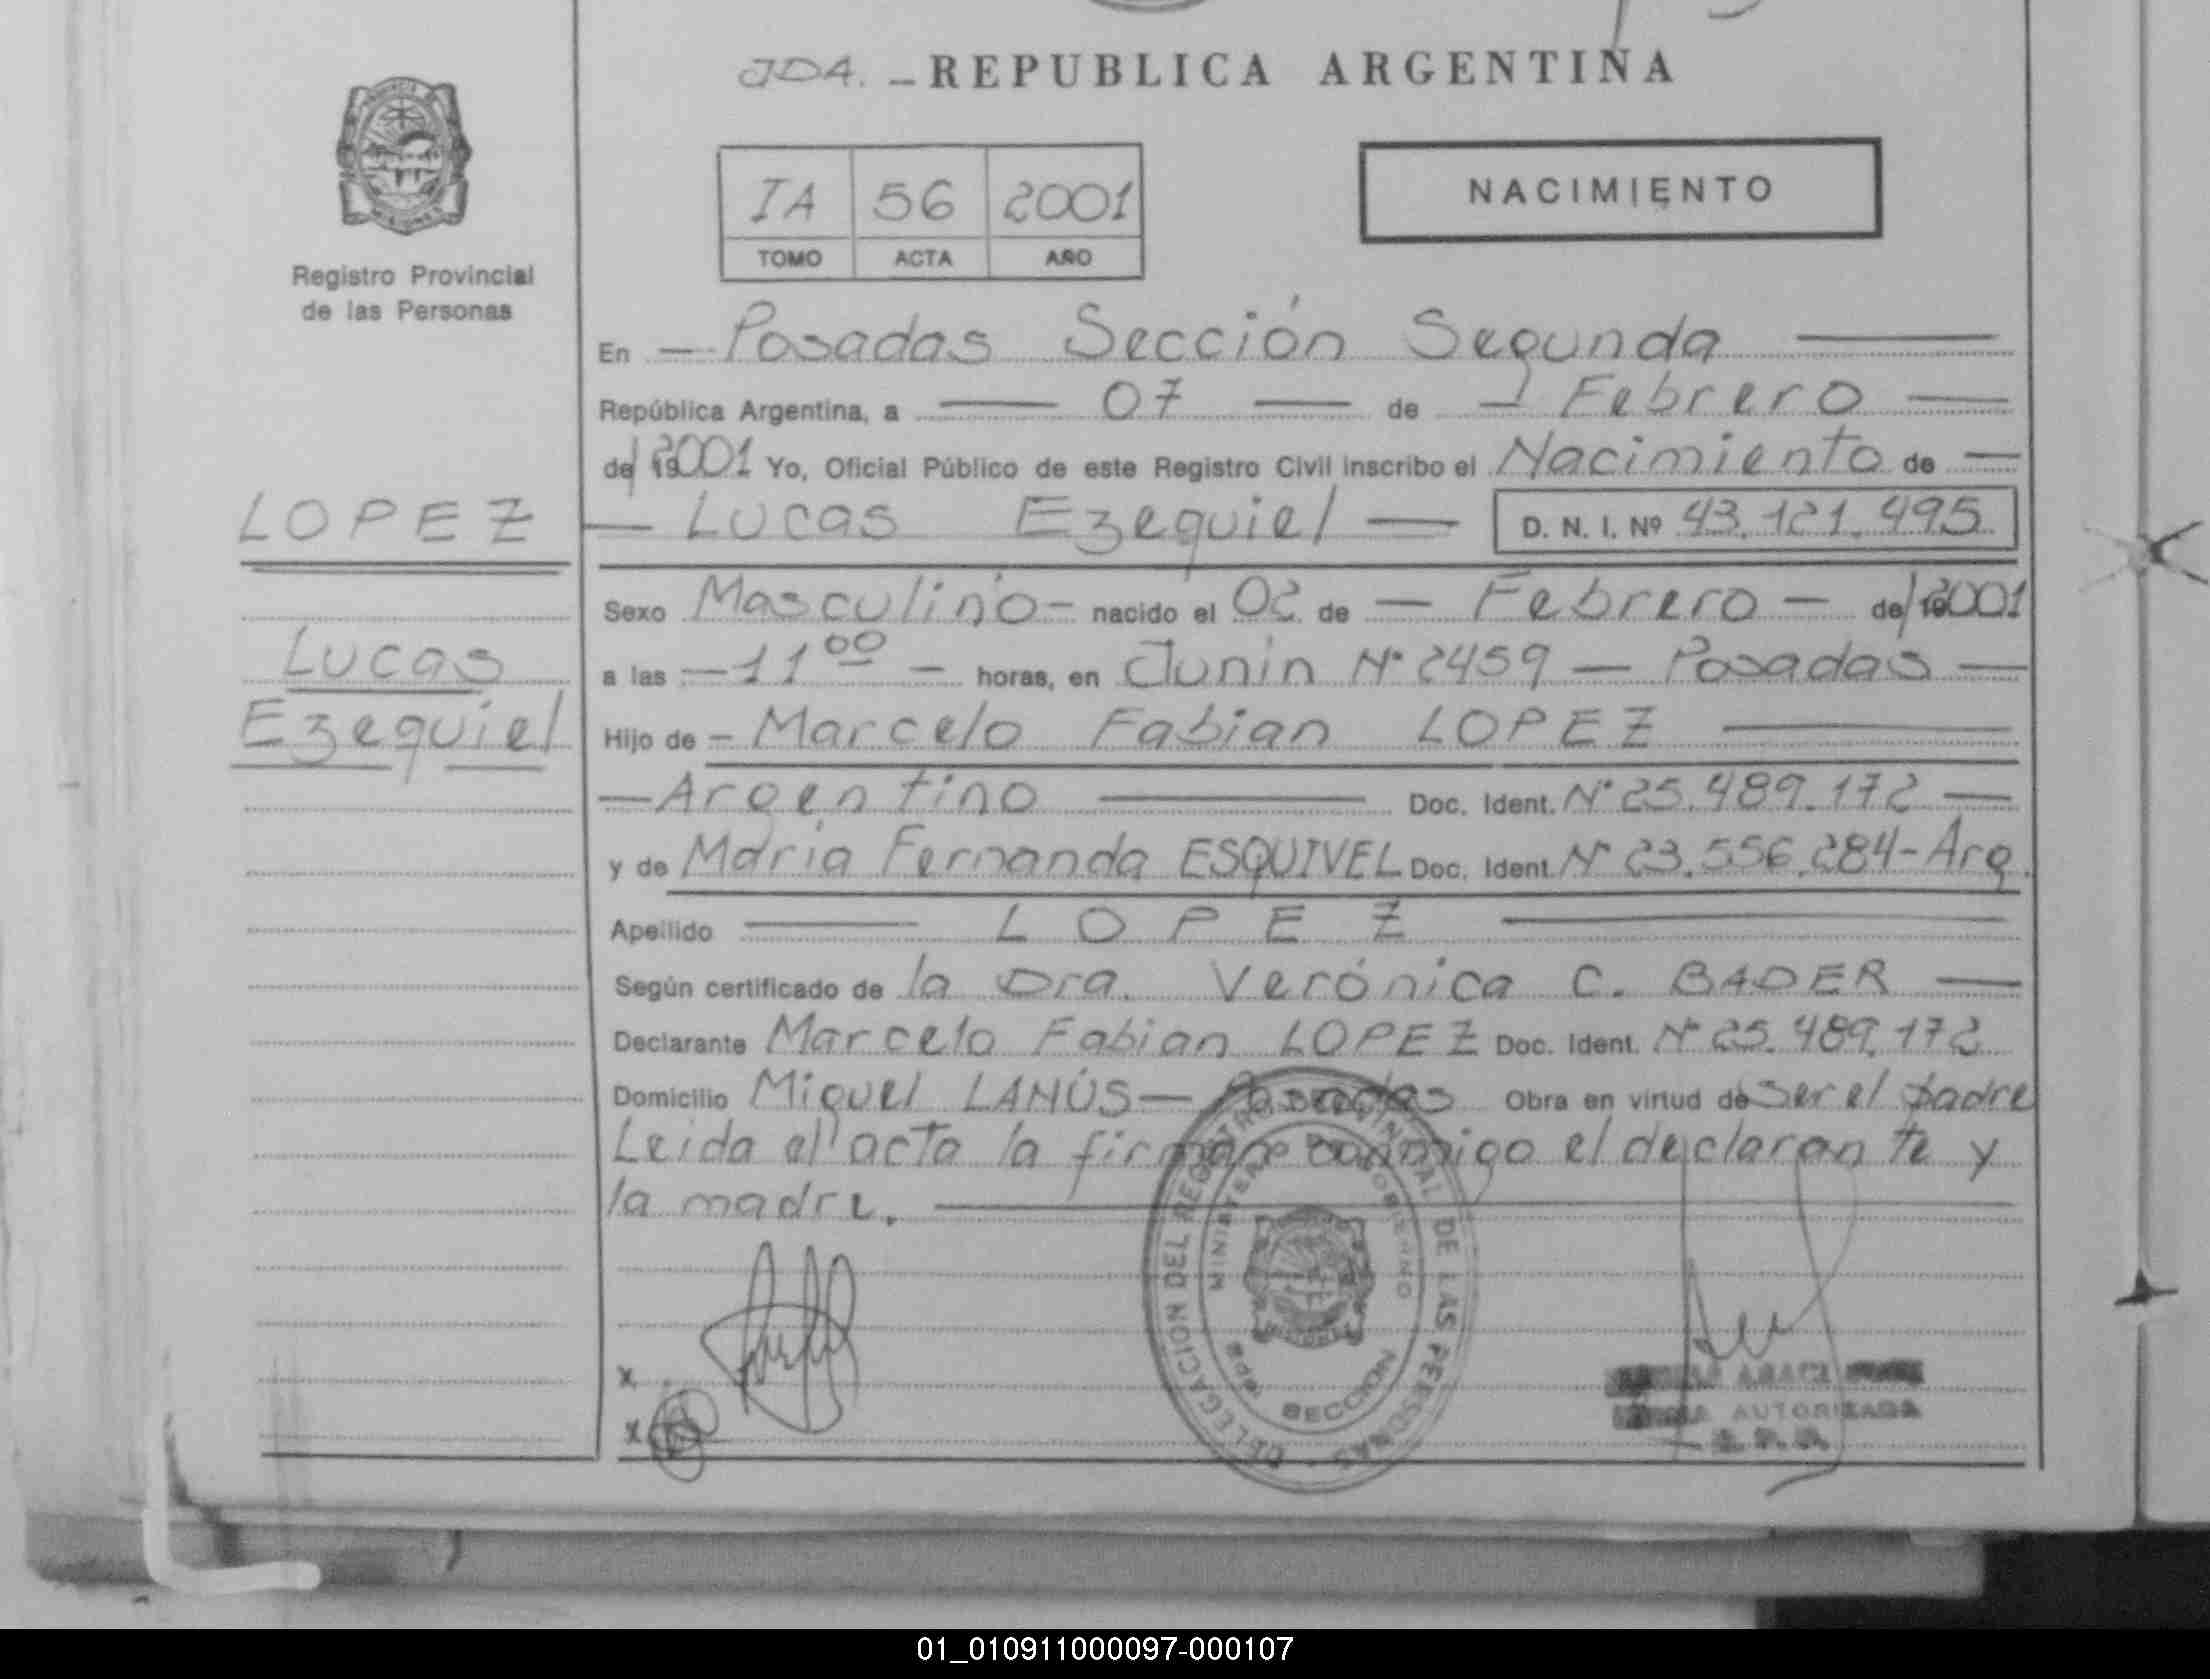 JDA. – REPUBLICA ARGENTINA
IA 56 2001
TOMO ACTA AÑO
NACIMIENTO
Registro Provincial
de las Personas
En — Posadas Sección Segunda —
República Argentina, a — 07 — de — Febrero —
de 2001 Yo, Oficial Público de este Registro Civil inscribo el Nacimiento de —
LOPEZ
— Lucas Ezequiel — D. N. I. Nº 43.121.495
Sexo Masculino – nacido el 02 de — Febrero — de 2001
Lucas
a las — 11 00 — horas, en Junín Nº 2459 — Posadas —
Ezequiel
Hijo de – Marcelo Fabian LOPEZ —
— Argentino — Doc. Ident. Nº 25.489.172 —
y de María Fernanda ESQUIVEL Doc. Ident. Nº 23.556.284 – Arg.
Apellido — LOPEZ —
Según certificado de la Dra. Verónica C. BADER —
Declarante Marcelo Fabian LOPEZ Doc. Ident. Nº 25.489.172
Domicilio Miguel LANÚS — Posadas Obra en virtud de ser el padre
Leida el acta la firman conmigo el declarante y
la madre. —
x
x
DELEGACION DEL REGISTRO PROVINCIAL DE LAS PERSONAS
MINISTERIO DE GOBIERNO
SECCION
AUTORIZADA
01_010911000097-000107